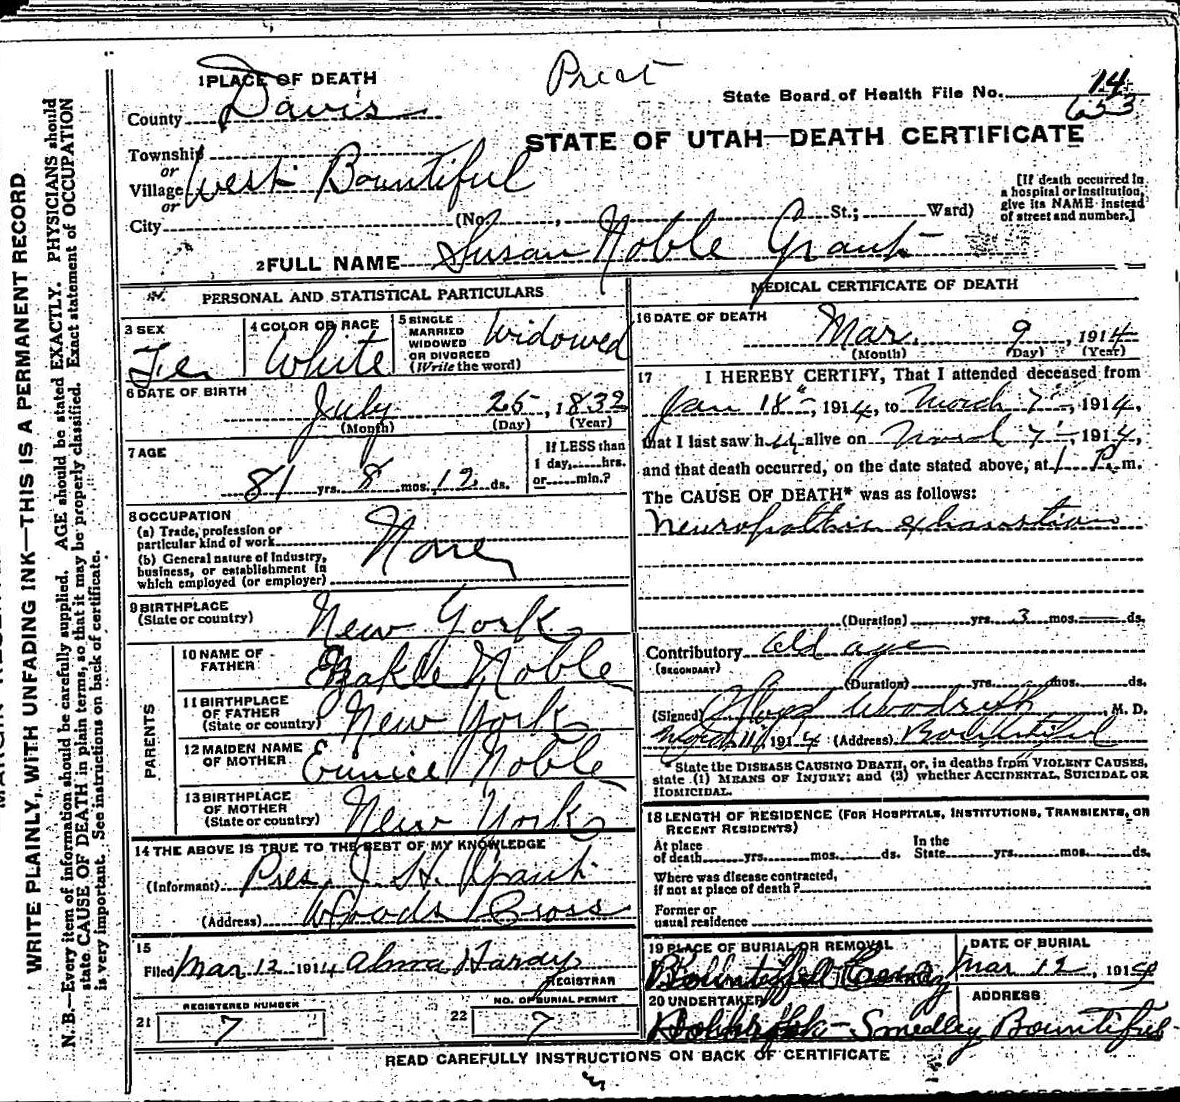 1 PLACE OF DEATH
State Board of Health File No. 14
653
County Davis
STATE OF UTAH—DEATH CERTIFICATE
Township
or
Village West Bountiful
or
City (No. , St.; Ward)
[If death occurred in
a hospital or institution,
give its NAME instead
of street and number.]
2 FULL NAME Susan Noble Grant
PERSONAL AND STATISTICAL PARTICULARS
3 SEX Fe
4 COLOR OR RACE White
5 SINGLE
MARRIED
WIDOWED
OR DIVORCED
(Write the word)
Widowed
6 DATE OF BIRTH
July 25, 1832
(Month) (Day) (Year)
7 AGE
81 yrs. 8 mos. 12 ds.
If LESS than
1 day, hrs.
or min.?
8 OCCUPATION
(a) Trade, profession or
particular kind of work None
(b) General nature of Industry,
business, or establishment in
which employed (or employer)
9 BIRTHPLACE
(State or country) New York
PARENTS
10 NAME OF
FATHER Noble
11 BIRTHPLACE
OF FATHER
(State or country) New York
12 MAIDEN NAME
OF MOTHER Eunice Noble
13 BIRTHPLACE
OF MOTHER
(State or country) New York
14 THE ABOVE IS TRUE TO THE BEST OF MY KNOWLEDGE
(Informant) Pres. J. H. Grant
(Address) Woods Cross
15
Filed Mar 12 1914 Alma Hardy
REGISTRAR
REGISTERED NUMBER
21 7
NO. OF BURIAL PERMIT
22 7
MEDICAL CERTIFICATE OF DEATH
16 DATE OF DEATH
Mar. 9, 1914
(Month) (Day) (Year)
17 I HEREBY CERTIFY, That I attended deceased from
Jan 18", 1914, to March 7", 1914,
that I last saw her alive on March 7", 1914,
and that death occurred, on the date stated above, at 1 P. m.
The CAUSE OF DEATH* was as follows:
Neuropathic exhaustion
(Duration) yrs. 3 mos. ds.
Contributory old age
(SECONDARY)
(Duration) yrs. mos. ds.
(Signed) Woodruff, M. D.
March 11, 1914 (Address) Bountiful
*State the DISEASE CAUSING DEATH, or, in deaths from VIOLENT CAUSES,
state (1) MEANS OF INJURY; and (2) whether ACCIDENTAL, SUICIDAL OR
HOMICIDAL.
18 LENGTH OF RESIDENCE (FOR HOSPITALS, INSTITUTIONS, TRANSIENTS, OR
RECENT RESIDENTS)
At place
of death yrs. mos. ds.
In the
State yrs. mos. ds.
Where was disease contracted,
if not at place of death?
Former or
usual residence
19 PLACE OF BURIAL OR REMOVAL
Bountiful
DATE OF BURIAL
Mar 12, 191
20 UNDERTAKER
Smedley
ADDRESS
Bountiful
READ CAREFULLY INSTRUCTIONS ON BACK OF CERTIFICATE
WRITE PLAINLY, WITH UNFADING INK—THIS IS A PERMANENT RECORD
N. B.—Every item of information should be carefully supplied. AGE should be stated EXACTLY. PHYSICIANS should
state CAUSE OF DEATH in plain terms, so that it may be properly classified. Exact statement of OCCUPATION
is very important. See instructions on back of certificate.